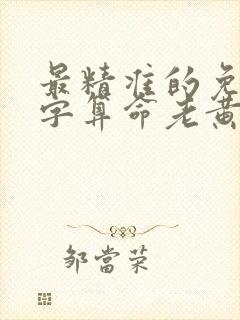 最精准的免
字算命老黄
邹當荣